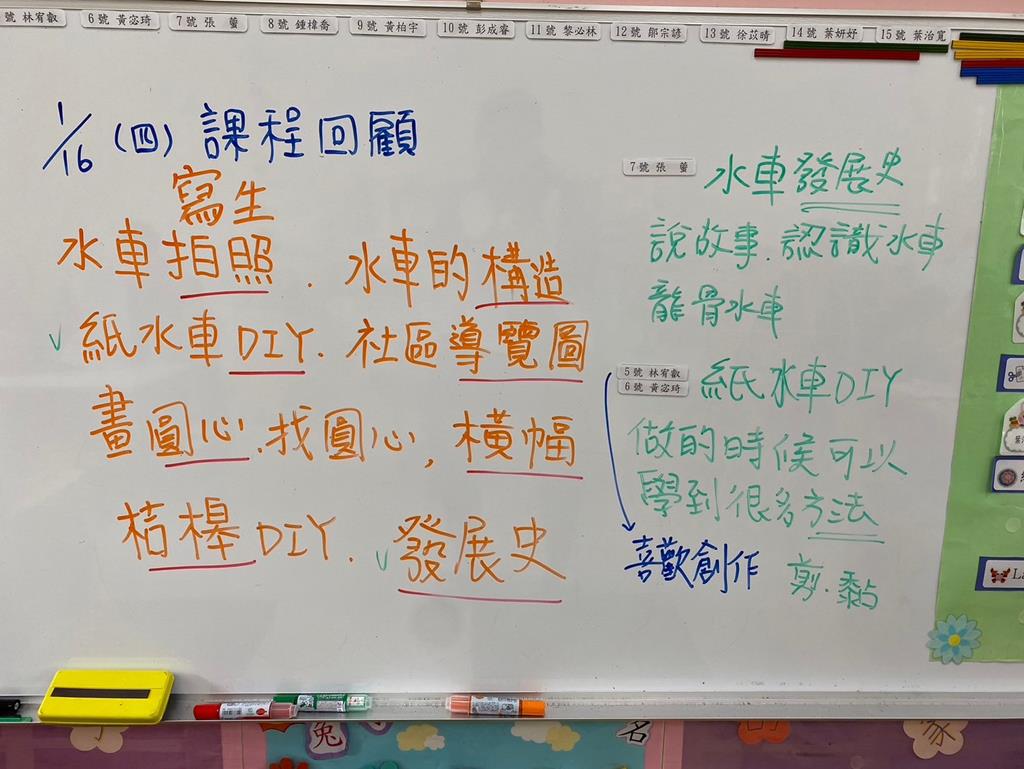 號 林宥叡
6號 黃宓琦
7號 張 蕾
8號 鍾樟喬
9號 黃柏宇
10號 彭成睿
11號 黎必林
12號 鄒宗諺
13號 徐苡晴
14號 葉妍妤
15號 葉治寬
1/16 (四) 課程回顧
寫生
水車拍照. 水車的構造
✓ 紙水車DIY. 社區導覽圖
畫圓心.找圓心, 橫幅
桔槔DIY. ✓ 發展史
7號 張 蕾 水車發展史
說故事.認識水車
龍骨水車
5號 林宥叡
6號 黃宓琦
紙水車DIY
做的時候可以
學到很多方法
喜歡創作 剪.黏
兔
名
家